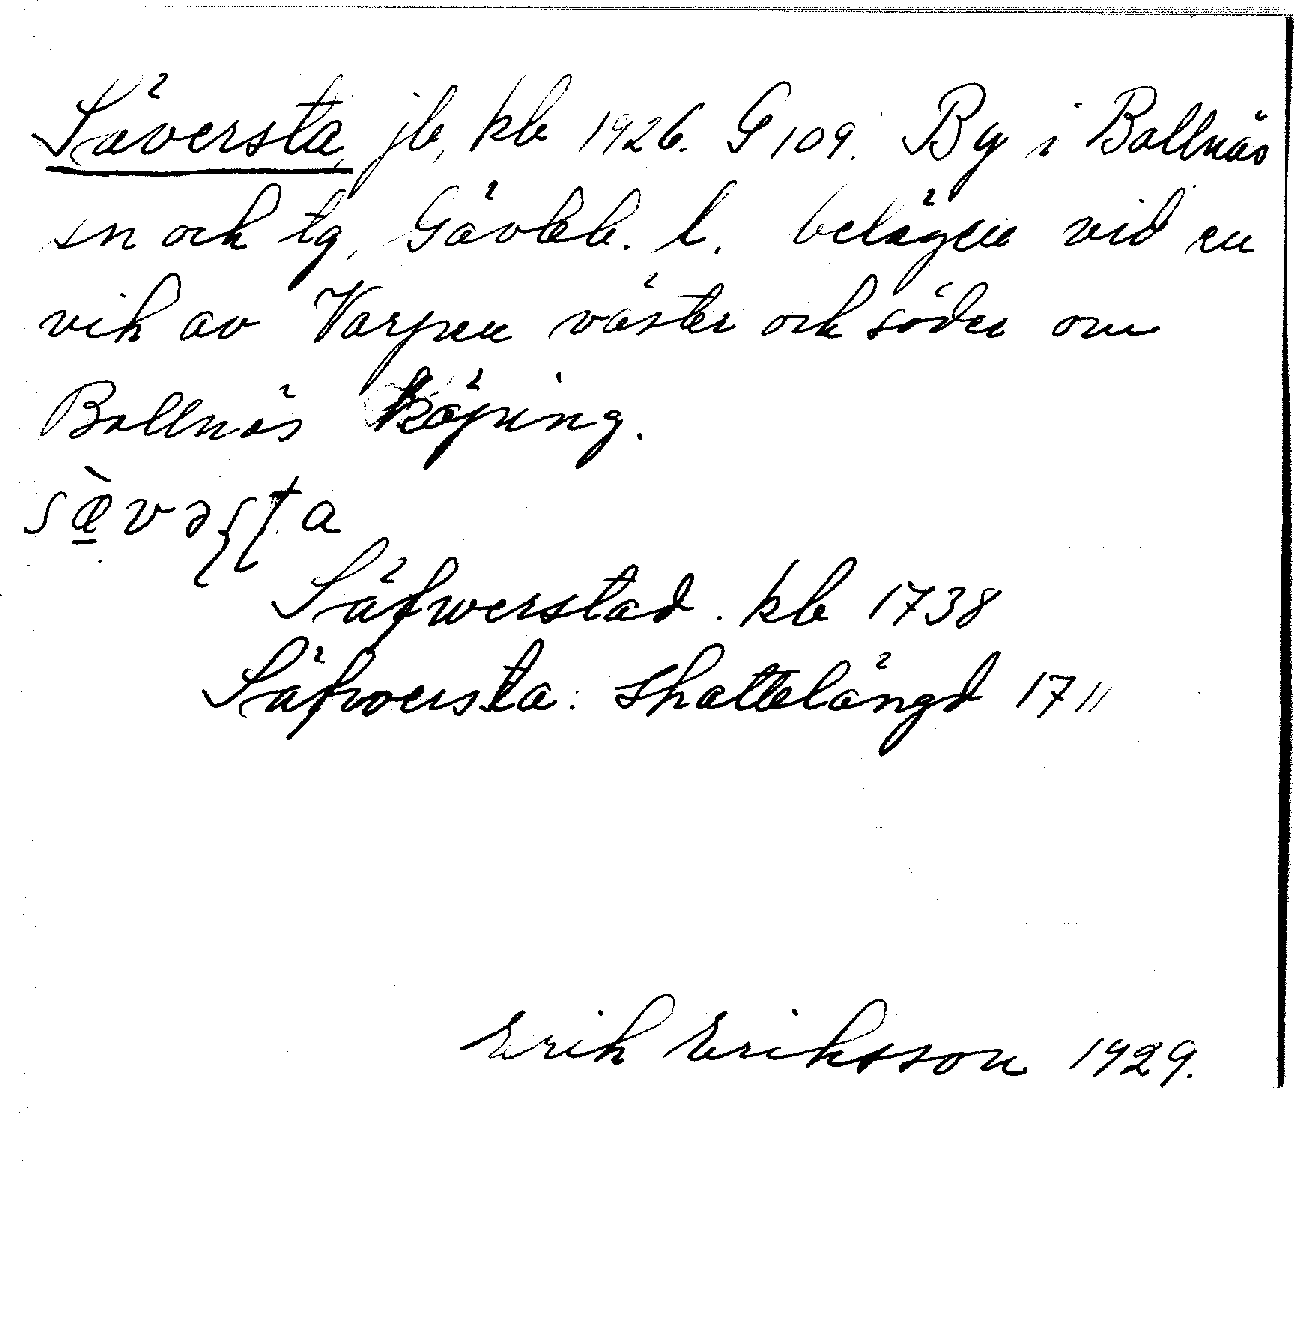 Säversta, jb, kb 1926. G 109. By i Bollnäs
sn och tg, Gävleb. l. belägen vid en
vik av Varpen väster och söder om
Bollnäs köping.
sæ̠̀vəʂʈa
Säfwerstad. kb 1738
Säfwersta: skattelängd 1711
Erik Eriksson 1929.